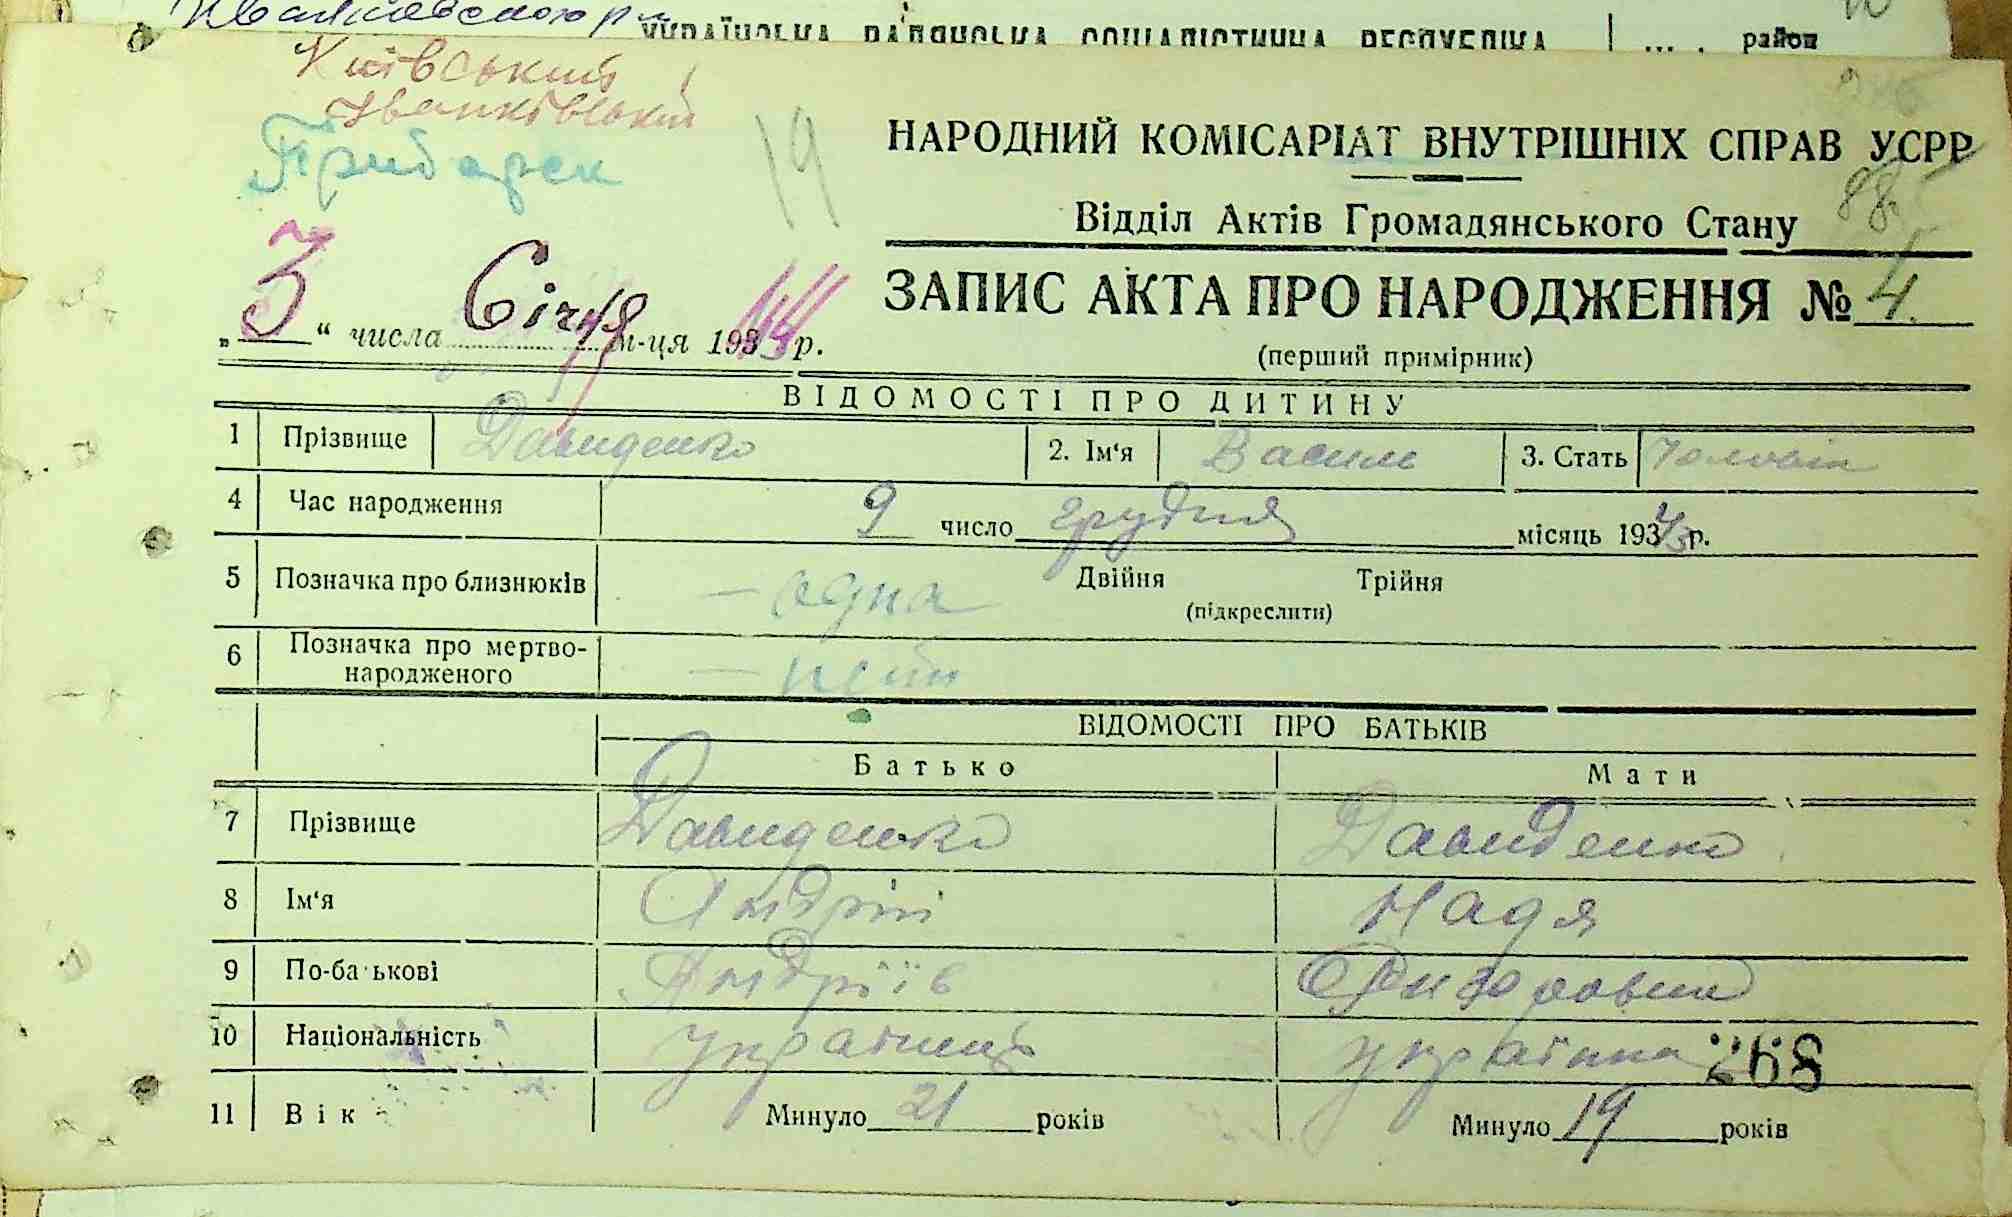 УКРАЇНСЬКА РАДЯНСЬКА СОЦІАЛІСТИЧНА РЕСПУБЛІКА район
Київський
Іванківський
Прибарск
19
НАРОДНИЙ КОМІСАРІАТ ВНУТРІШНІХ СПРАВ УСРР
88
Відділ Актів Громадянського Стану
ЗАПИС АКТА ПРО НАРОДЖЕННЯ № 4.
„3“ числа Січня м-ця 193 р.
(перший примірник)
ВІДОМОСТІ ПРО ДИТИНУ
1 Прізвище Давиденко 2. Ім‘я Василь 3. Стать
4 Час народження 9 число грудня місяць 193 р.
5 Позначка про близнюків — одна Двійня Трійня
(підкреслити)
6 Позначка про мертво-
народженого — нет
ВІДОМОСТІ ПРО БАТЬКІВ
Батько Мати
7 Прізвище Давиденко Давиденко
8 Ім‘я Андрій Надя
9 По-ба ькові Андріїв
10 Національність українець українка 268
11 Вік Минуло 21 років Минуло 19 років